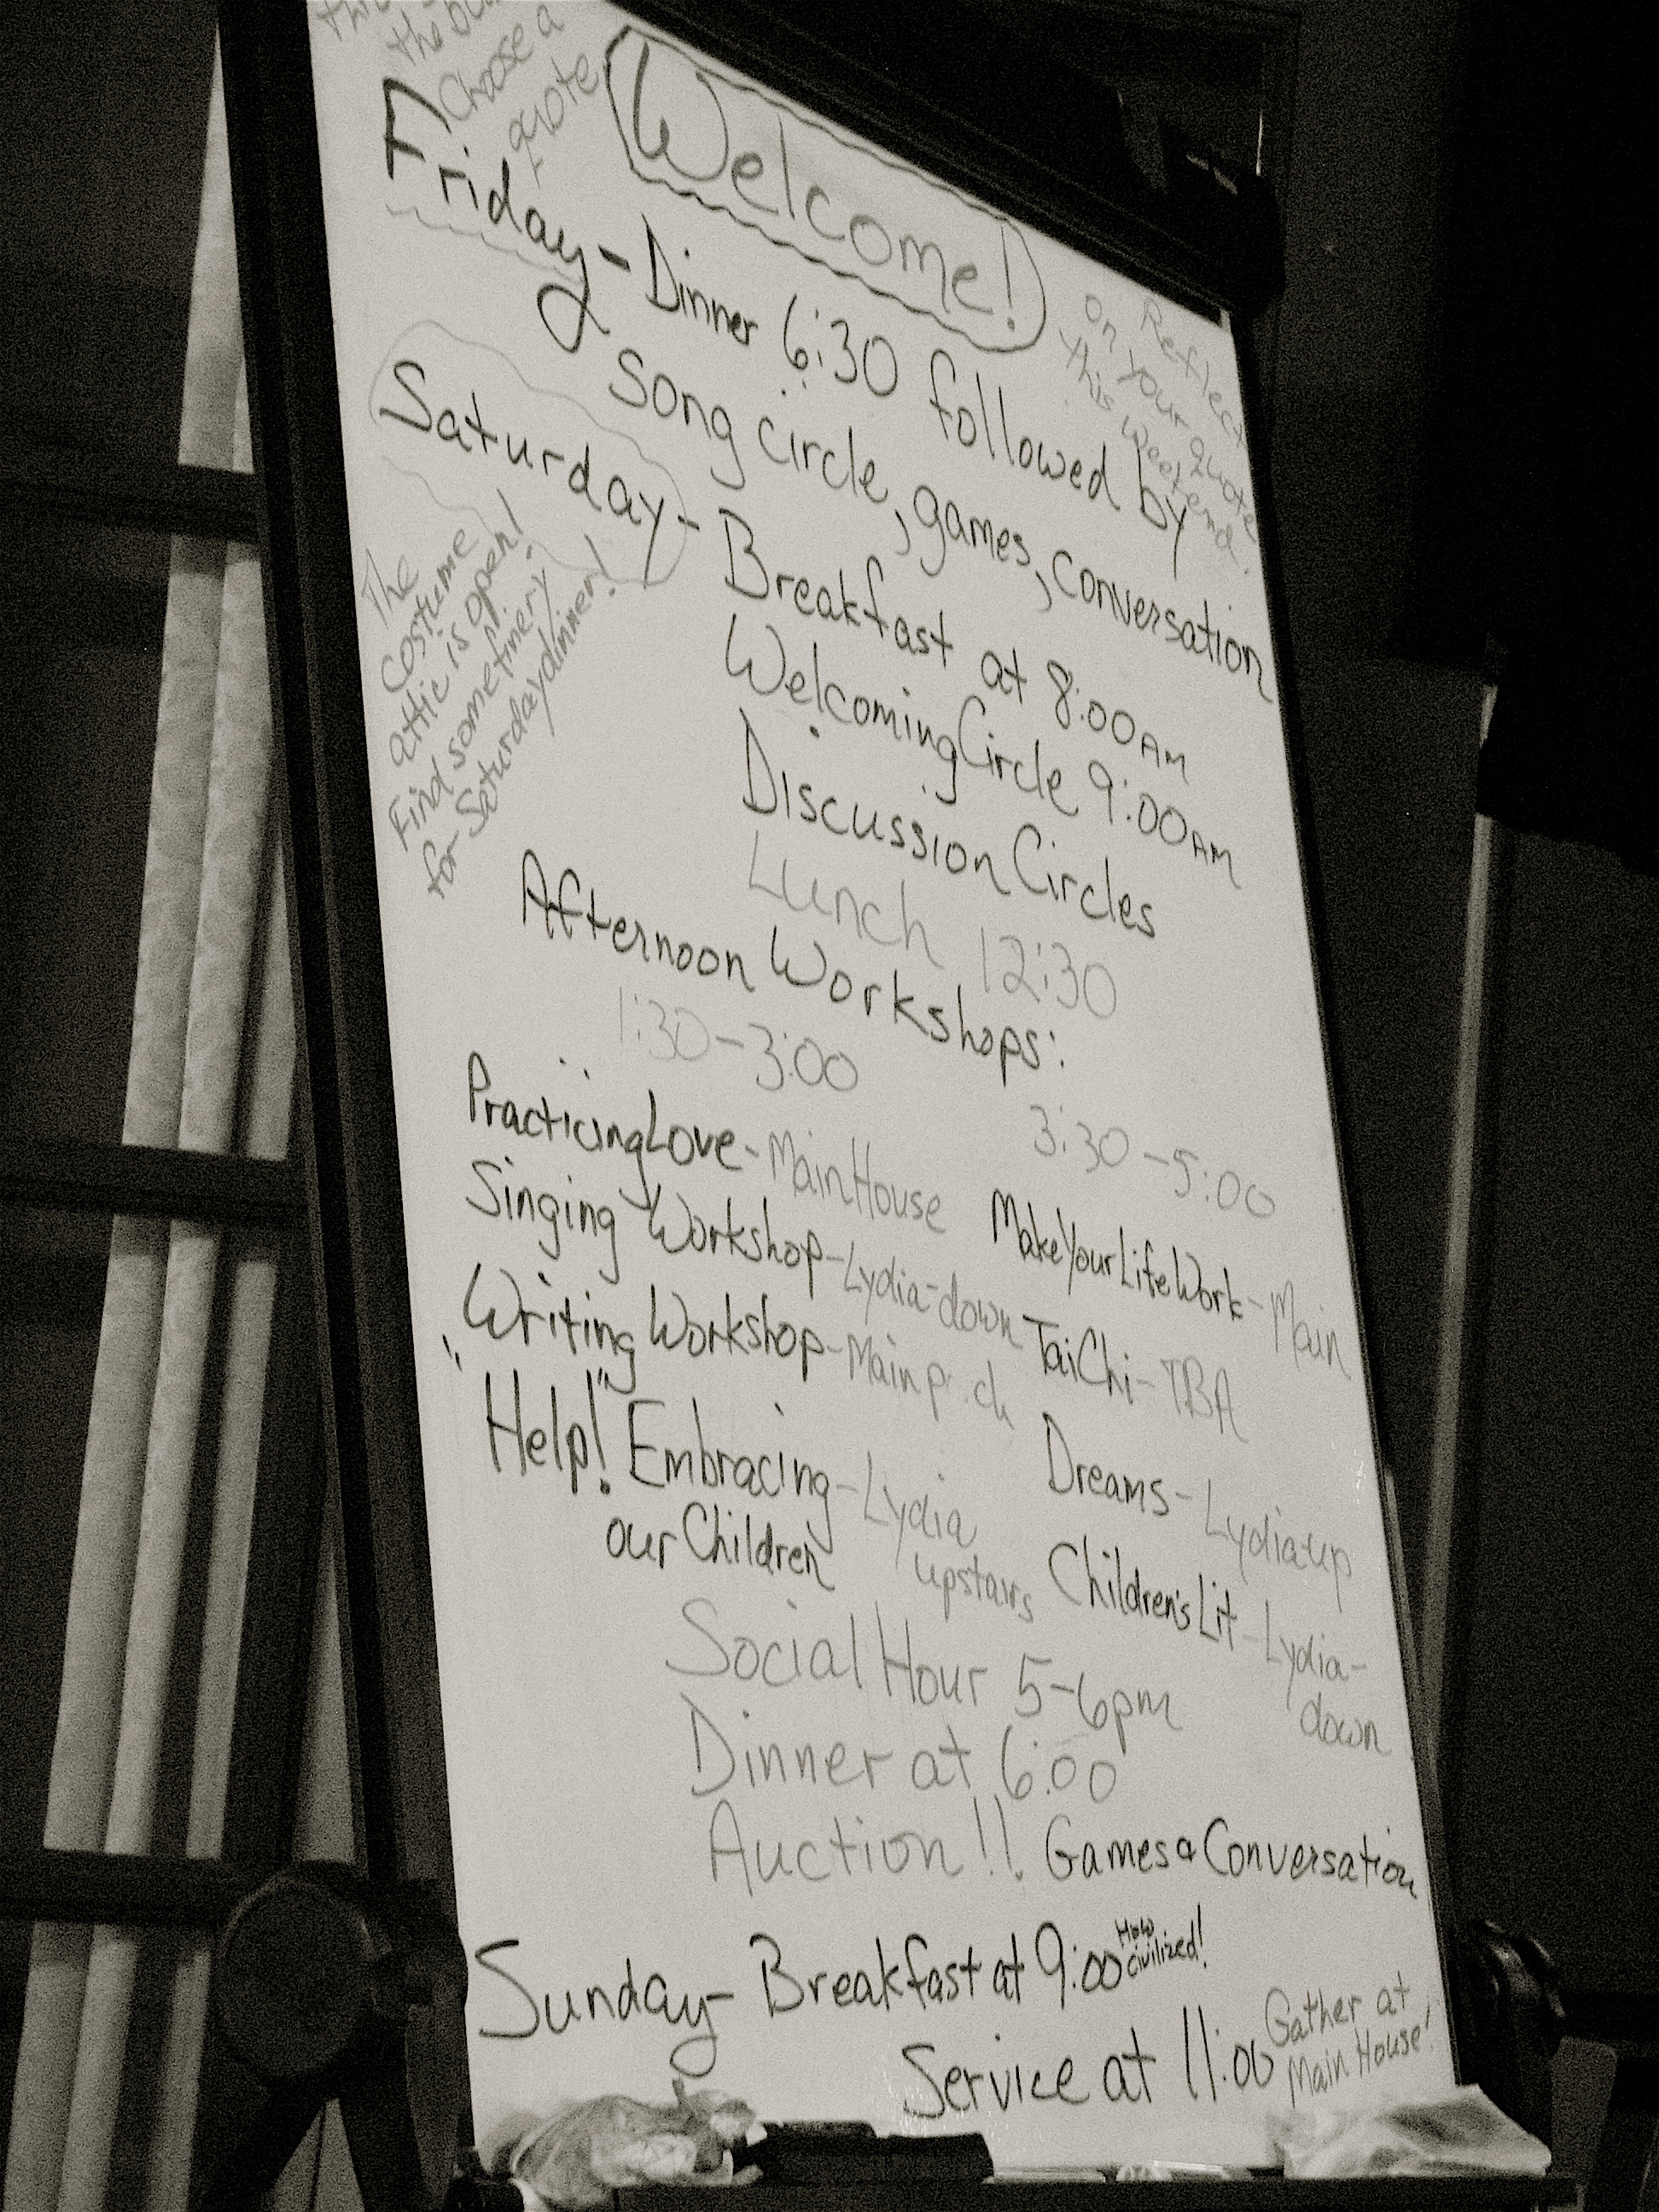 the
Choose a
quote
Welcome!
Reflect
on your quote
this weekend.
Friday - Dinner 6:30 followed by
Song circle, games, conversation
Saturday - Breakfast at 8:00 AM
Welcoming Circle 9:00 AM
Discussion Circles
Lunch 12:30
The
costume
attic is open!
Find some finery
for Saturday dinner!
Afternoon Workshops:
1:30-3:00
Practicing Love - Main House
Singing Workshop - Lydia-down
Writing Workshop - Main
"Help!" Embracing - Lydia
our Children upstairs
3:30-5:00
Make Your Life Work - Main
Tai Chi - TBA
Dreams - Lydia-up
Children's Lit - Lydia-
down
Social Hour 5-6pm
Dinner at 6:00
Auction!! Games & Conversation
Sunday - Breakfast at 9:00 How
civilized!
Service at 11:00 Gather at
Main House!